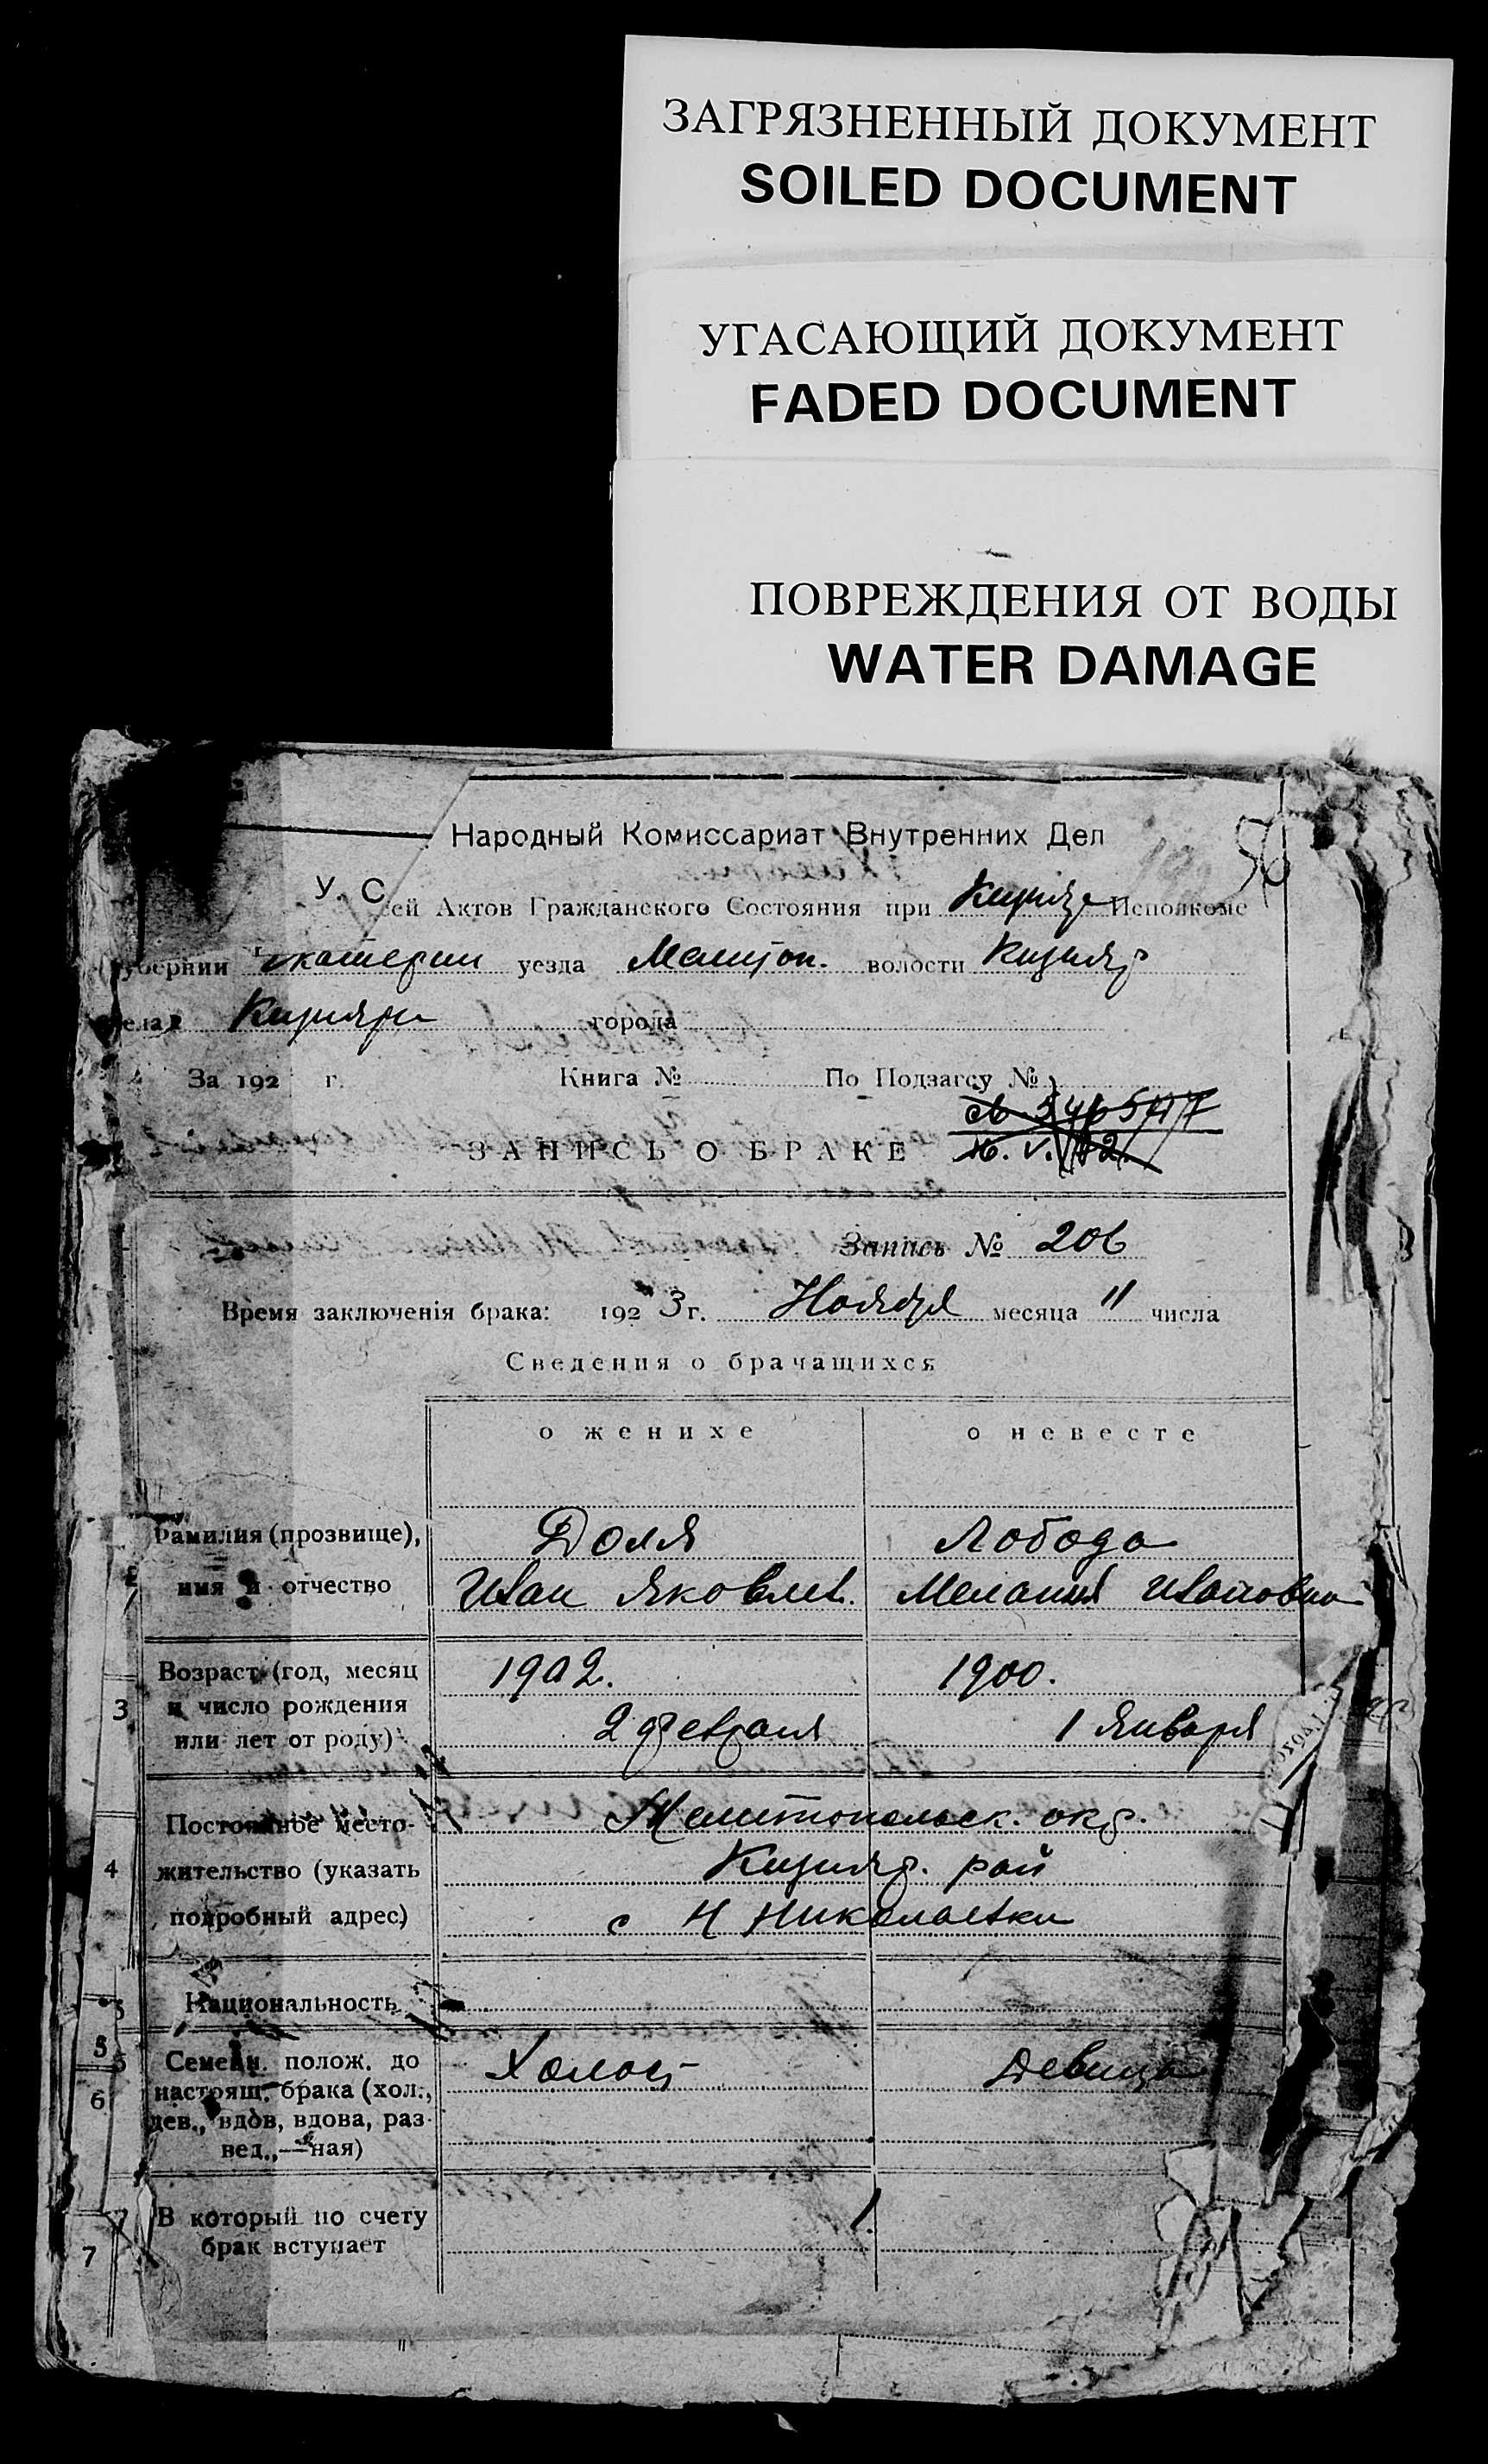 ЗАГРЯЗНЕННЫЙ ДОКУМЕНТ
SOILED DOCUMENT
УГАСАЮЩИЙ ДОКУМЕНТ
FADED DOCUMENT
ПОВРЕЖДЕНИЯ ОТ ВОДЫ
WATER DAMAGE
Народный Комиссариат Внутренних Дел
56
У. С.
сей Актов Гражданского Состояния при Кизияр Исполкоме
убернии Екатерин уезда Мелитоп. волости Кизияр
ела Кизияри города
За 192 г. Книга № По Подзагсу №
ЗАПИСЬ О БРАКЕ
Запись № 206
Время заключенія брака: 1923 г. Ноября месяца 11 числа
Сведения о брачащихся
о женихе о невесте
Фамилия (прозвище), Доля Лобода
имя и отчество Иван Яковлев. Мелания Ивановна
Возраст (год, месяц 1902. 1900.
3 и число рождения
или лет от роду) 2 февраля 1 Января
Постоянное место- Мелитопольск. окр.
4 жительство (указать Кизияр. рай
подробный адрес) с Н Николаевки
5 Национальность
5 Семейн. полож. до Холост Девица
6 настоящ. брака (хол.,
дев., вдов, вдова, раз-
вед.,—ная)
В который по счету 1.
7 брак вступает